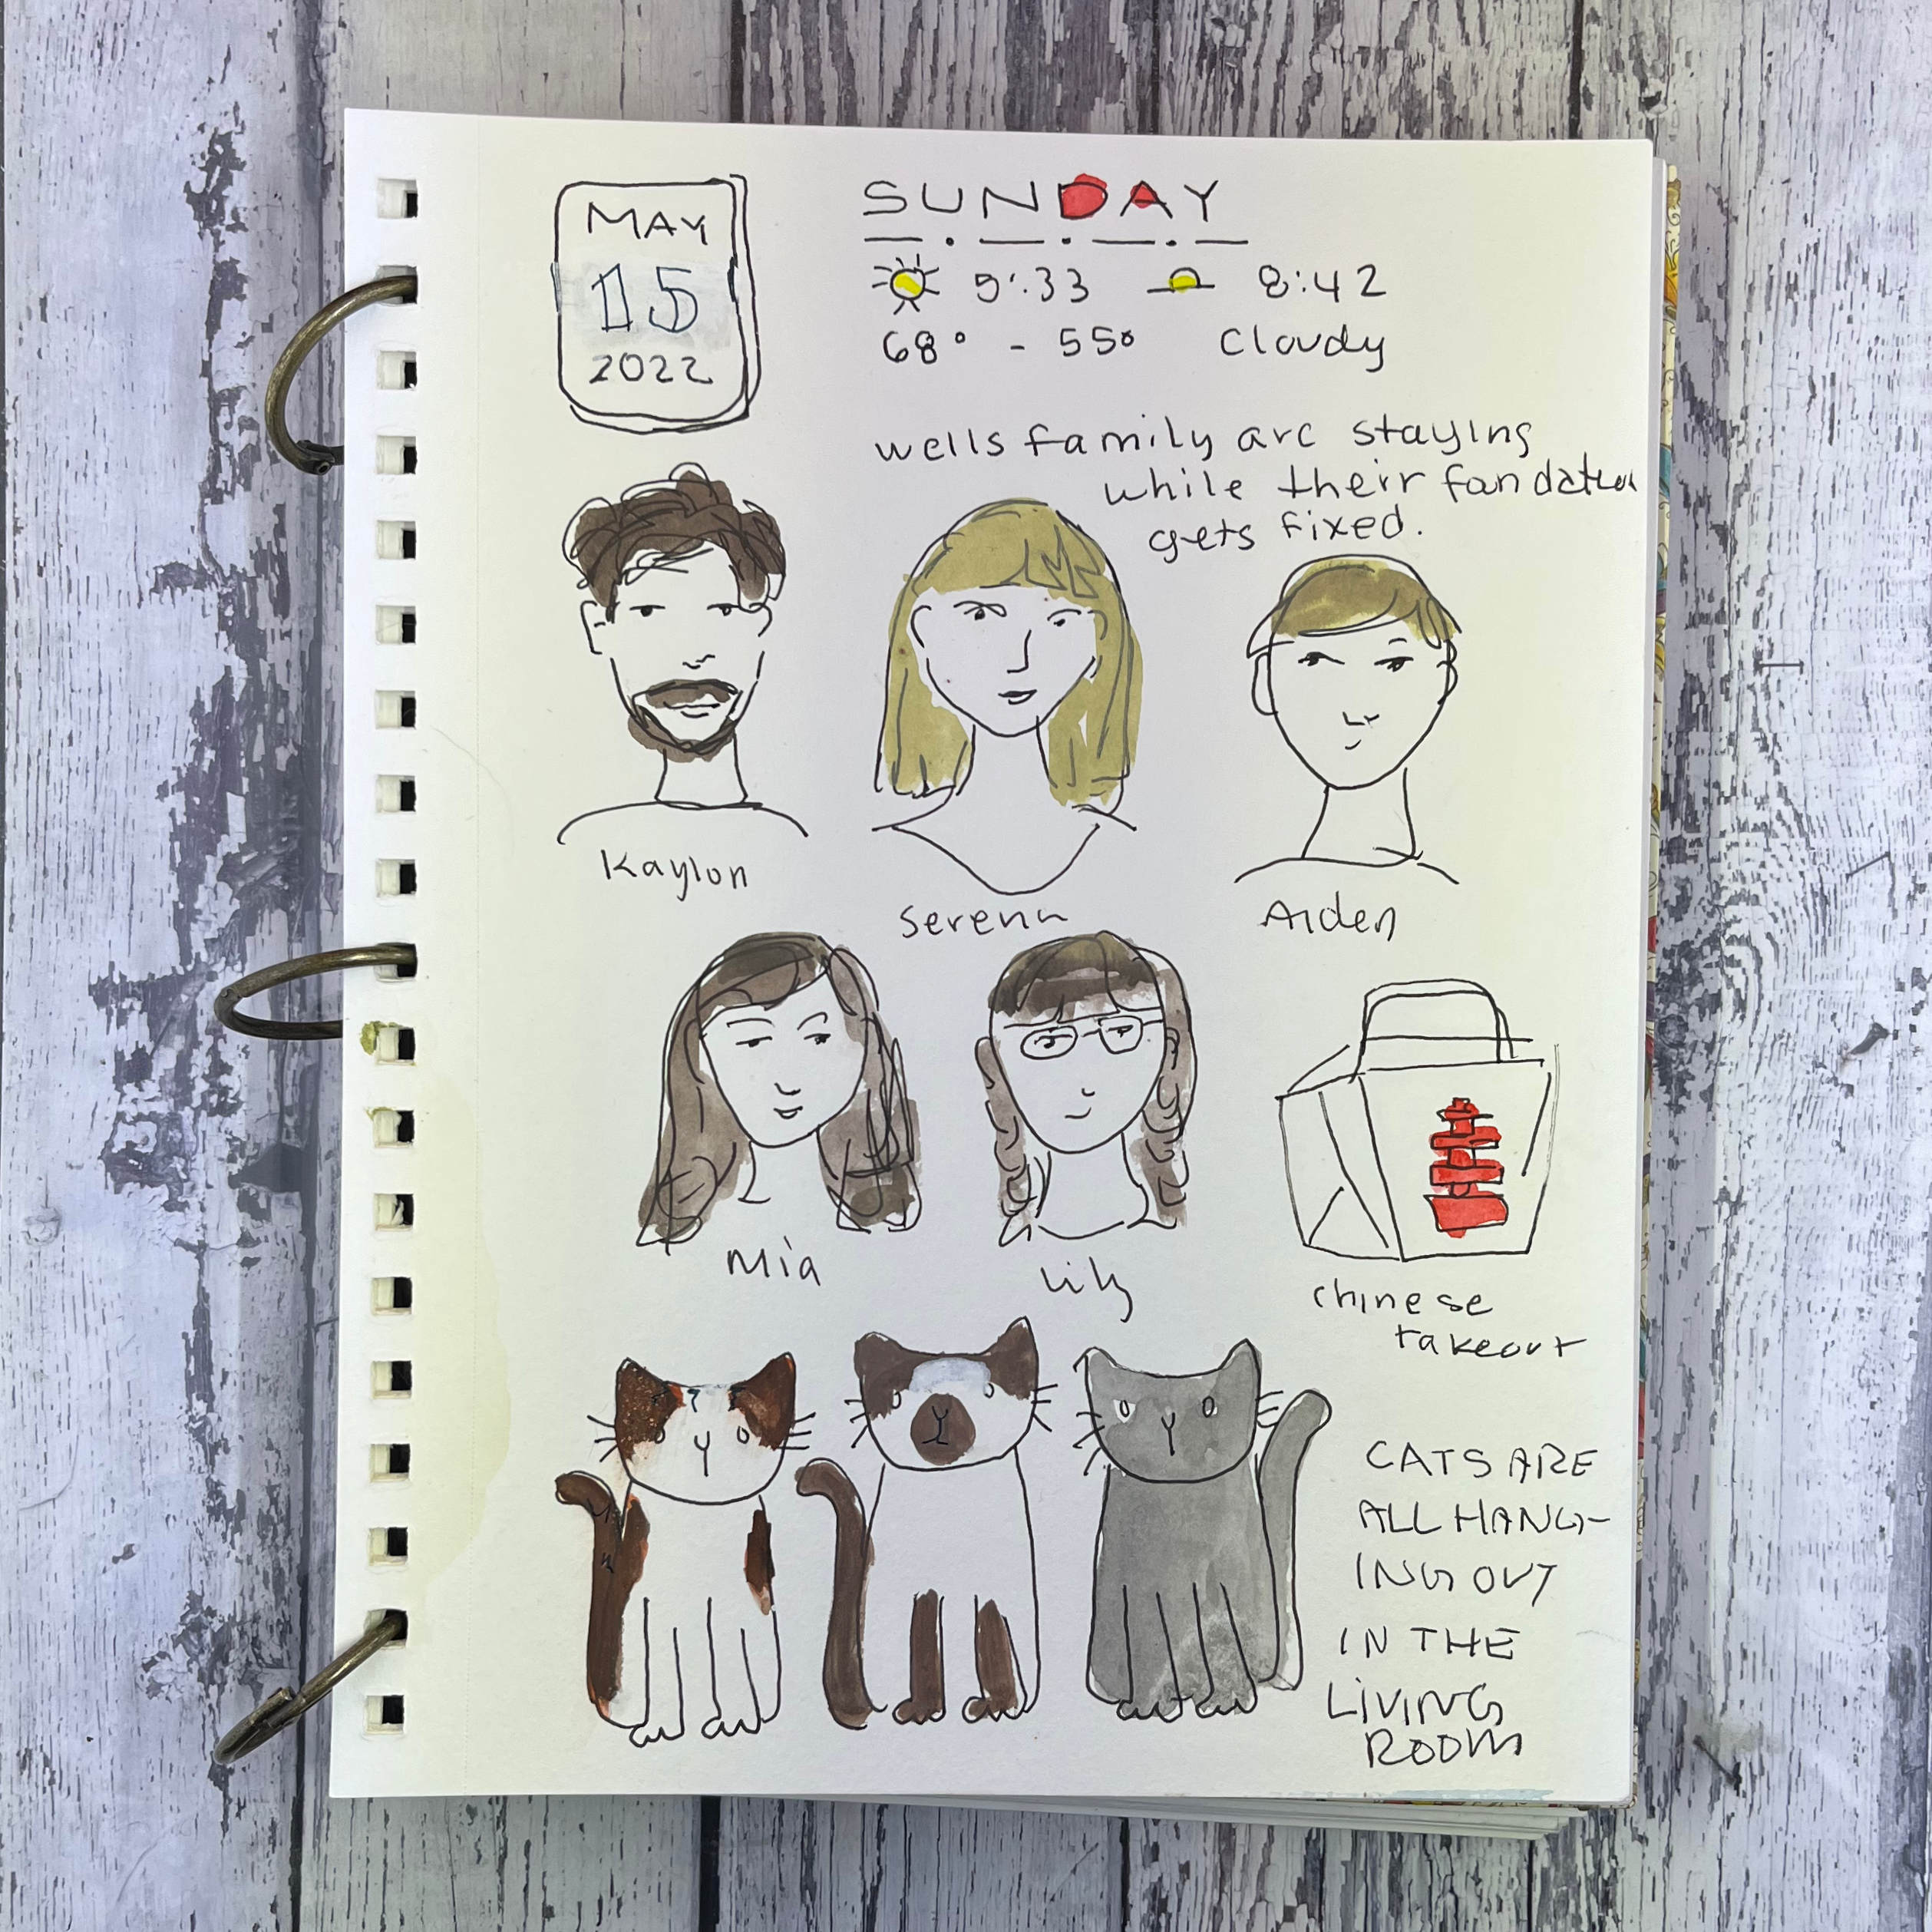 MAY
15
2022
SUNDAY
5:33 8:42
68° - 55° Cloudy
wells family are staying
while their fandation
gets fixed.
Kaylon
Serena
Aiden
Mia
Lily
chinese
takeout
CATS ARE
ALL HANG-
ING OUT
IN THE
LIVING
ROOM